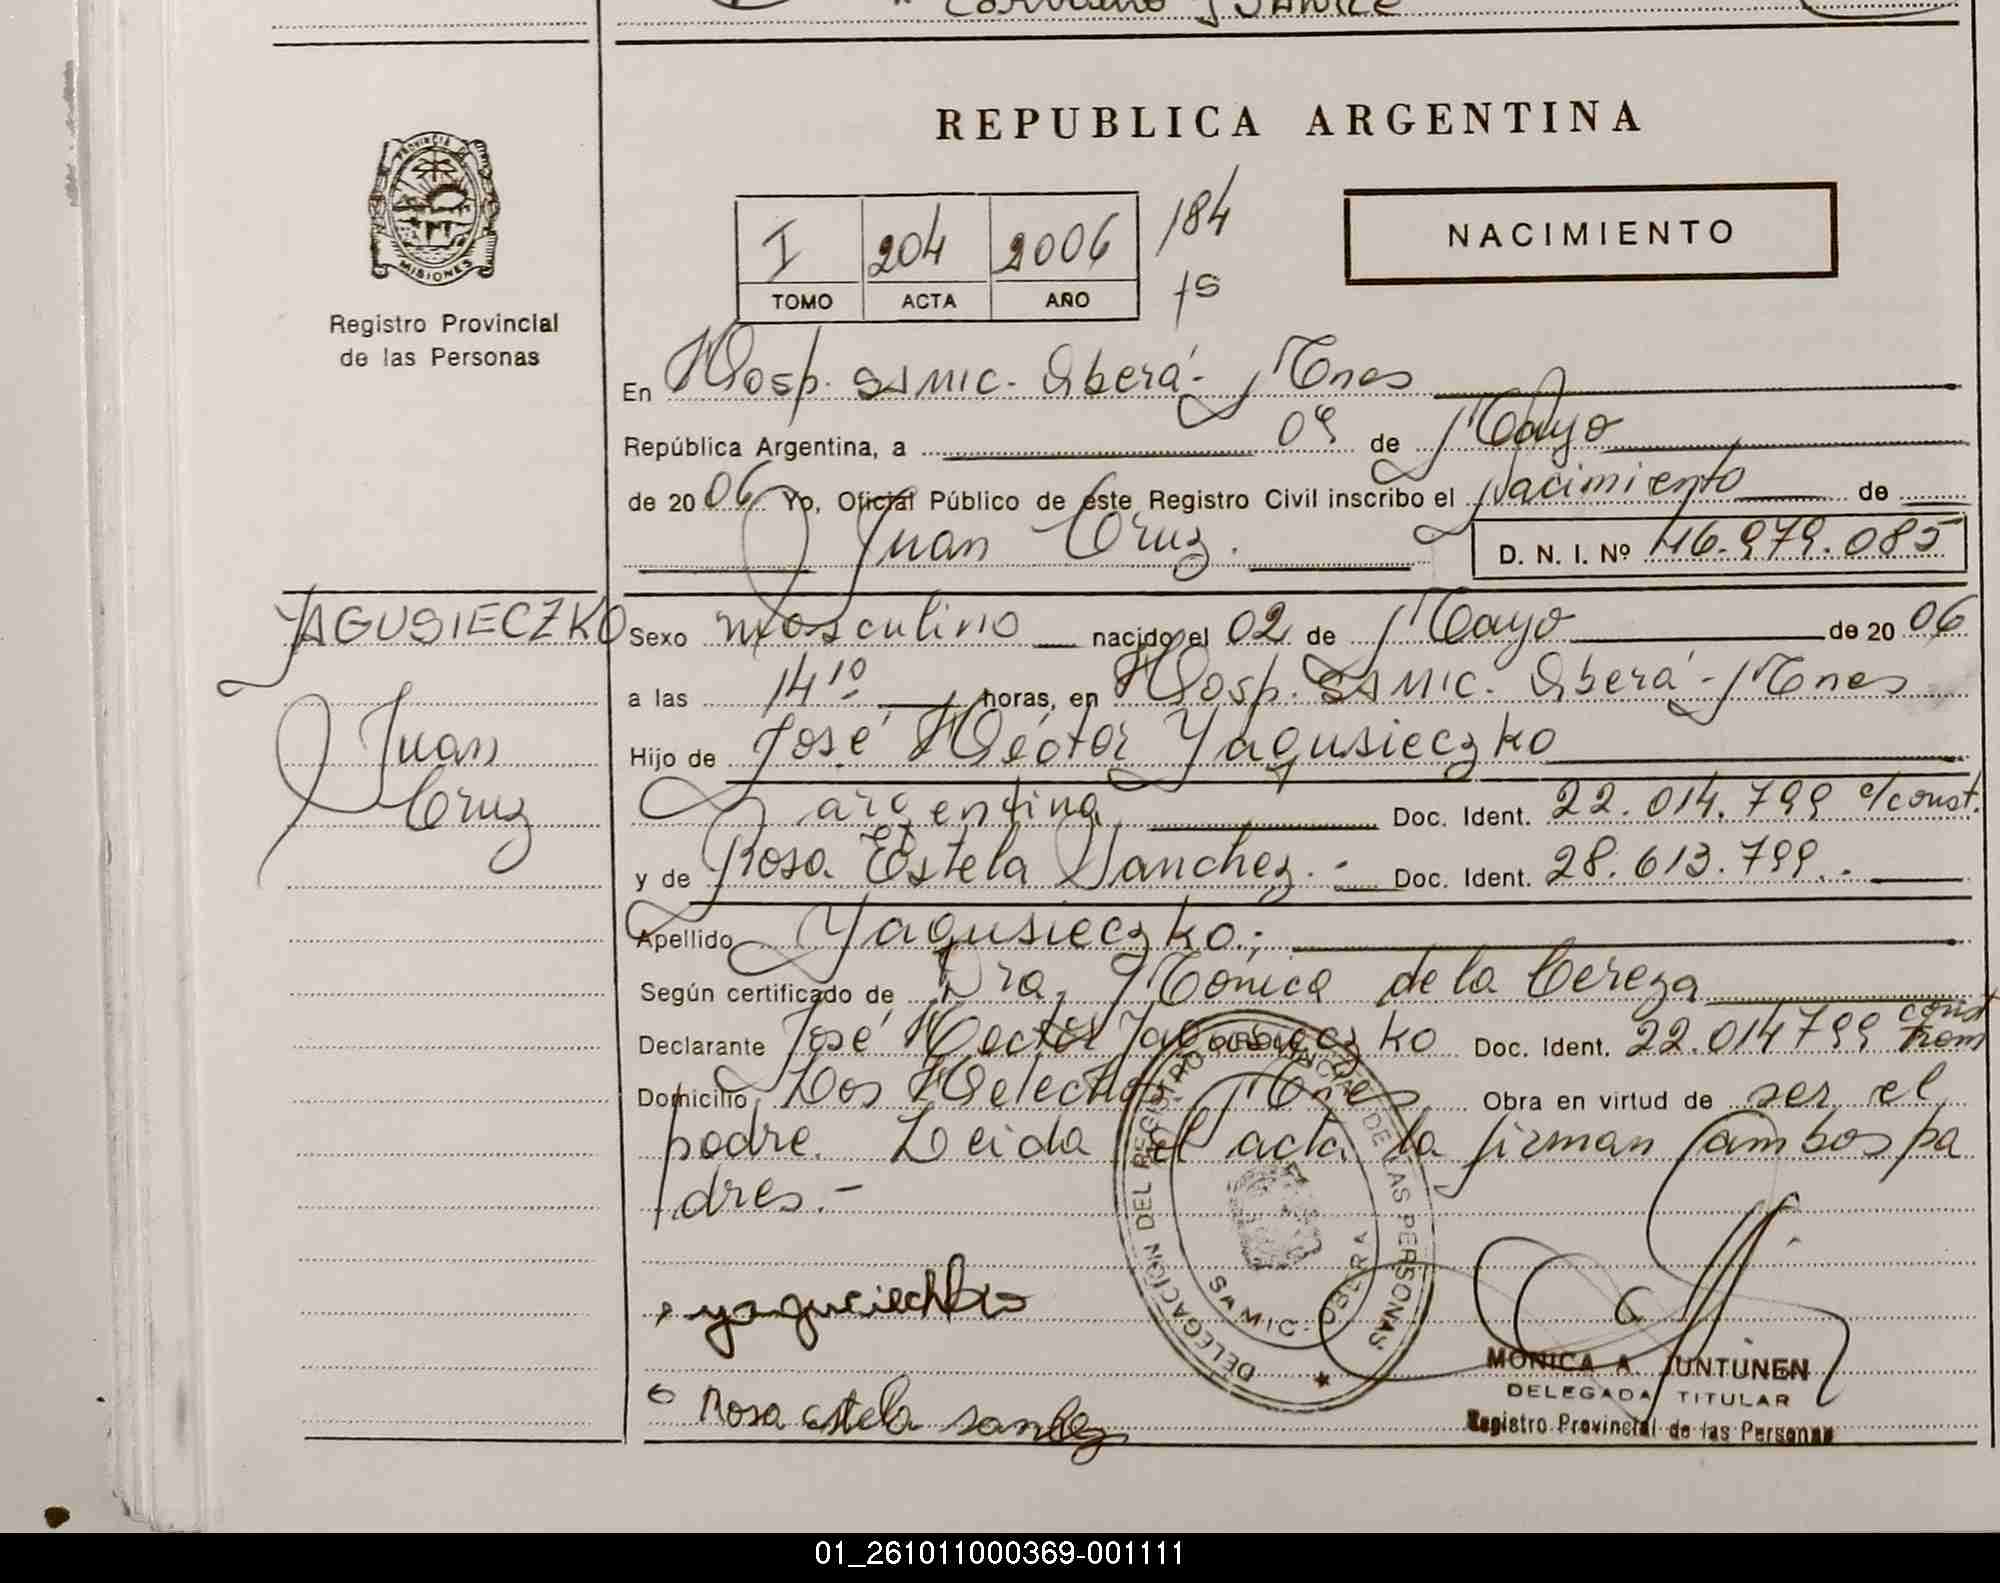 REPUBLICA ARGENTINA
PROVINCIA DE
MISIONES
Registro Provincial
de las Personas
I 204 2006
TOMO ACTA AÑO
184
NACIMIENTO
En Hosp. SAMIC. Oberá - Mnes
República Argentina, a 09 de Mayo
de 2006 Yo, Oficial Público de este Registro Civil inscribo el Nacimiento de
Juan Cruz. D. N. I. Nº 46.979.085
YAGUSIECZKO
Juan
Cruz
Sexo masculino nacido el 02 de Mayo de 2006
a las 14 10 horas, en Hosp. SAMIC. Oberá - Mnes
Hijo de José Héctor Yagusieczko
argentina Doc. Ident. 22.014.799 c/const.
y de Rosa Estela Sanchez. - Doc. Ident. 28.613.799. -
Apellido Yagusieczko. -
Según certificado de Dra. Monica de la Cereza
Declarante José Hector Yagusieczko Doc. Ident. 22.014799 const
Domicilio Los Helechos Mnes Obra en virtud de ser el
padre. Leida el acta la firman ambos pa
dres. -
DELEGACION DEL REGISTRO PROVINCIAL DE LAS PERSONAS
SAMIC - OBERA
Rosa estela sanchez
MONICA A. JUNTUNEN
DELEGADA TITULAR
Registro Provincial de las Personas
01_261011000369-001111